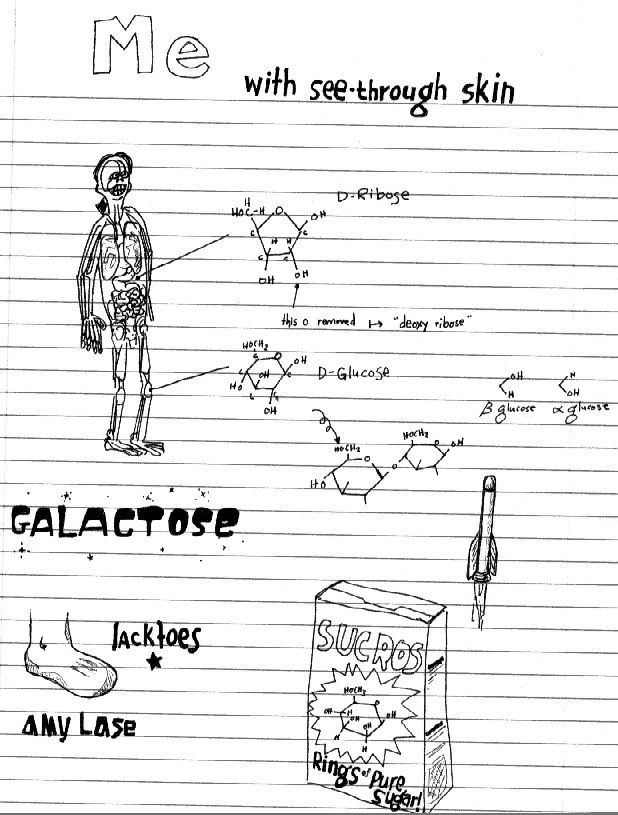 Me
with see-through skin
D-Ribose
H
HOC-H
O
OH
C
C
H
H
C
C
OH
OH
this o removed ↦ "deoxy ribose"
HOCH2
O
OH
D-Glucose
C
C
OH
C
HO
C
C
OH
OH
H
H
OH
β glucose
α glucose
HOCH2
OH
HOCH2
O
O
HO
GALACTOSE
lacktoes
AMY LASE
SUCROS
HOCH2
OH
H
O
OH
OH
OH
H
H
Rings of Pure
Sugar!